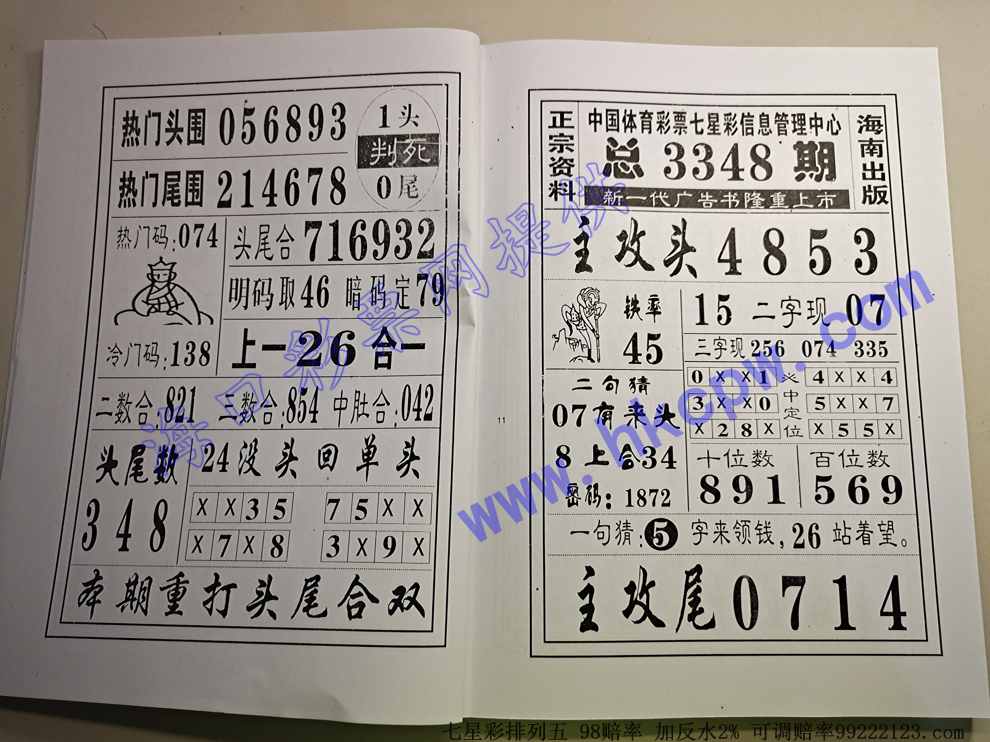 热门头围 056893
热门尾围 214678
1头
判死
0尾
热门码:074
冷门码:138
头尾合 716932
明码取46 暗码定79
上一26合一
二数合:821 三数合:854 中肚合:042
头尾数
348
24没头回单头
XX35 75XX
X7X8 3X9X
本期重打头尾合双
11
正宗资料
中国体育彩票七星彩信息管理中心
总 3348 期
新一代广告书隆重上市
海南出版
主攻头 4853
铁率
45
15 二字现 07
三字现 256 074 335
二句猜
07有来头
8上合34
密码:1872
0XX1
3XX0
X28X
必中定位
4XX4
5XX7
X55X
十位数
891
百位数
569
一句猜:5字来领钱,26站着望。
主攻尾 0714
海口彩票网提供
www.hkcpw.com
七星彩排列五 98赔率 加反水2% 可调赔率99222123.com